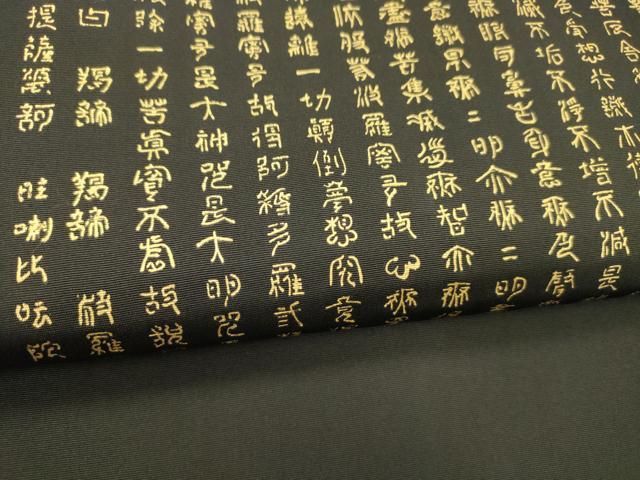 色受想行識亦復
滅不垢不淨不增不減是
無眼耳鼻舌身意無色聲
意識界無二明亦無二明
盡無苦集滅道無智亦無得
依般若波羅蜜多故心無
離一切顛倒夢想究竟
羅蜜多故得阿耨多羅弎
羅蜜多是大神咒是大明咒
除一切苦真實不虛故說
曰 羯諦 羯諦 波羅
提薩婆訶 喇